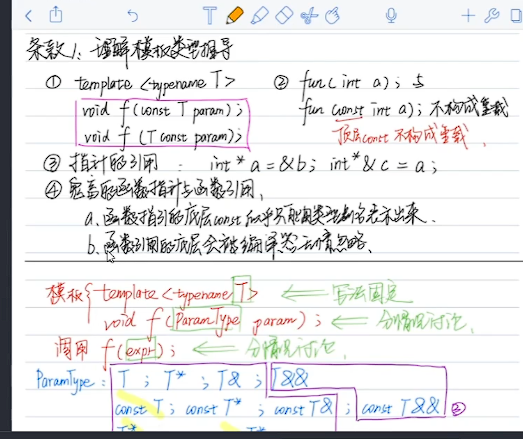 条款1：理解模板类型推导
① template <typename T>
void f(const T param);
void f(T const param);
② fun(int a); 与
fun(const int a); 不构成重载
顶层const不构成重载.
③ 指针的引用: int* a = &b; int*& c = a;
④ 完善的函数指针与函数引用.
a. 函数指针的底层const似乎只能用类型别名表示出来.
b. 函数引用的底层会被编译器忽略.
模板{ template<typename T> ⇐ 写法固定
void f(ParamType param); ⇐ 分情况讨论.
调用 f(expr); ⇐ 分情况讨论.
ParamType: T ; T* ; T& ; T&&
const T ; const T* ; const T& ; const T&& ②